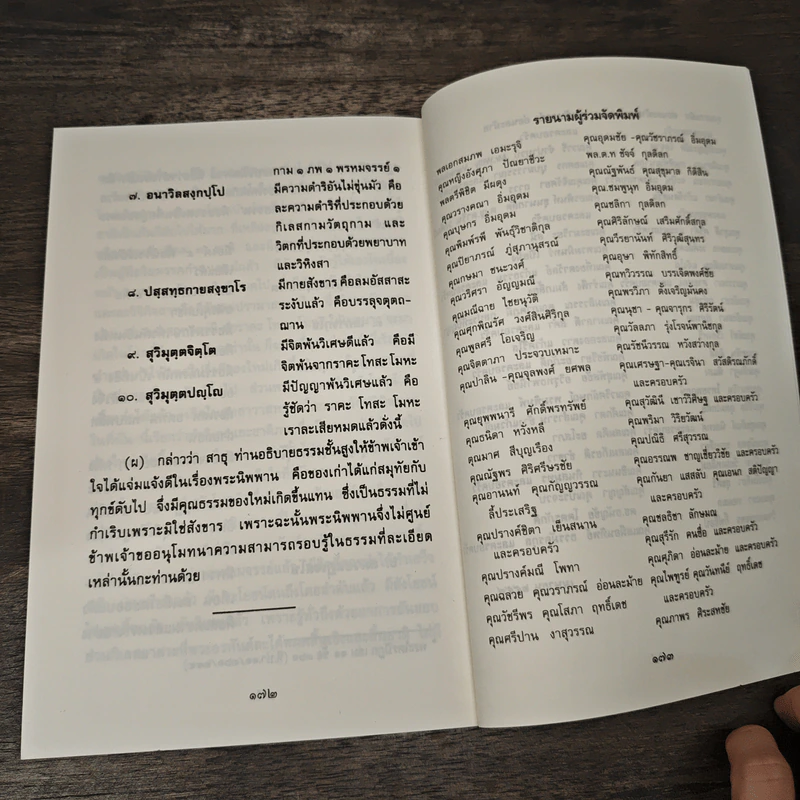 กาม ๑ ภพ ๑ พรหมจรรย์ ๑
๗. อนาวิลสงฺกปฺโป มีความดำริอันไม่ขุ่นมัว คือ
ละความดำริที่ประกอบด้วย
กิเลสกามวัตถุกาม และ
วิตกที่ประกอบด้วยพยาบาท
และวิหิงสา
๘. ปสฺสทฺธกายสงฺขาโร มีกายสังขาร คือลมอัสสาสะ
ระงับแล้ว คือบรรลุจตุตถ-
ฌาน
๙. สุวิมุตฺตจิตฺโต มีจิตพ้นวิเศษดีแล้ว คือมี
จิตพ้นจากราคะ โทสะ โมหะ
๑๐. สุวิมุตฺตปญฺโญ มีปัญญาพ้นวิเศษแล้ว คือ
รู้ชัดว่า ราคะ โทสะ โมหะ
เราละเสียหมดแล้วดั่งนี้
(ผ) กล่าวว่า สาธุ ท่านอธิบายธรรมชั้นสูงให้ข้าพเจ้าเข้า
ใจได้แจ่มแจ้งดีในเรื่องพระนิพพาน คือของเก่าได้แก่สมุทัยกับ
ทุกข์ดับไป จึงมีคุณธรรมของใหม่เกิดขึ้นแทน ซึ่งเป็นธรรมที่ไม่
กำเริบเพราะมิใช่สังขาร เพราะฉะนั้นพระนิพพานจึงไม่ศูนย์
ข้าพเจ้าขออนุโมทนาความสามารถรอบรู้ในธรรมที่ละเอียด
เหล่านั้นกะท่านด้วย
๑๗๒
รายนามผู้ร่วมจัดพิมพ์
พลเอกสมภพ เอมะรุจิ
คุณหญิงอังศุภา ปัณยาชีวะ
พลตรีพิชิต มีผดุง
คุณวรางคณา อิ่มอุดม
คุณบุษกร อิ่มอุดม
คุณพิมพ์รพี พันธุ์วิชาติกุล
คุณปิยาภรณ์ ภู่สุภานุสรณ์
คุณกษมา ชนะวงศ์
คุณวริศรา อัญญมณี
คุณมณีฉาย ไชยนุวัติ
คุณศุภพิณรัศ วงศ์สินศิริกุล
คุณพูลศรี โอเจริญ
คุณจิตตาภา ประจวบเหมาะ
คุณปาลิน -คุณจุลพงศ์ ยศพล
คุณยุพพนารี ศักดิ์พรทรัพย์
คุณธนิดา หวังหลี
คุณมาศ สีบุญเรือง
คุณณัฐพร ศิริศรีษรชัย
คุณอานนท์ คุณกัญญวรรณ
ลี้ประเสริฐ
คุณปรางค์ชิตา เย็นสนาน
และครอบครัว
คุณปรางค์มณี โพทา
คุณฉลวย คุณวราภรณ์ อ่อนละม้าย
คุณวัชรีพร คุณโสภา ฤทธิ์เดช
คุณศรีปาน งาสุวรรณ
คุณอุดมชัย -คุณวัชราภรณ์ อิ่มอุดม
พล.ต.ท ชัจจ์ กุลดิลก
คุณณัฐพันธ์ คุณสุชุมาล กิติสิน
คุณ.ชมพูนุท อิ่มอุดม
คุณชลิกา กุลดิลก
คุณศิริลักษณ์ เสริมศักดิ์สกุล
คุณวีรยานันท์ ศิริวุฒิสุนทร
คุณอุษา พิทักสิทธิ์
คุณทวิวรรณ บรรเจิดพงศ์ชัย
คุณพรวิภา ตั้งเจริญมั่นคง
คุณนุชา - คุณจารุกร ศิริรัตน์
คุณวัลลภา รุ่งโรจน์พานิชกุล
คุณรัชนีวรรณ หวังสว่างกุล
คุณเศรษฐา-คุณเรจินา สวัสดิรณภักดิ์
และครอบครัว
คุณสุวัฒนี เชาว์วิศิษฐ และครอบครัว
คุณพริมา วิริยวัฒน์
คุณปณิธิ ศรีสุวรรณ
คุณอรรณพ ชาญเชี่ยววิชัย และครอบครัว
คุณกันยา แสสลับ คุณเอนก สติปัญญา
และครอบครัว
คุณชลธิชา ลักษมณ
คุณสุรีรัก คนซื่อ และครอบครัว
คุณศุภิดา อ่อนละม้าย และครอบครัว
คุณไพฑูรย์ คุณวันทนีย์ ฤทธิ์เดช
และครอบครัว
คุณภาพร ศิระสหชัย
๑๗๓